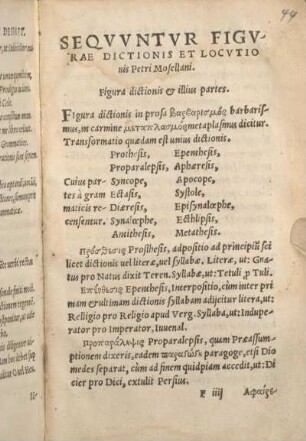 44
SEQVVNTVR FIGV-
RAE DICTIONIS ET LOCVTIO
nis Petri Mosellani.
Figura dictionis & illius partes.
Figura dictionis in prosa βαρβαρισμὸς barbaris
mus, in carmine μεταπλασμὸς metaplasmus dicitur.
Transformatio quædam est unius dictionis.
Prothesis, Epenthesis,
Proparalepsis, Aphæresis,
Cuius par- Syncope, Apocope,
tes à gram Ectasis, Systole,
maticis re- Diæresis, Episynalœphe,
censentur. Synalœphe, Ecthlipsis,
Antithesis, Metathesis.
Πρόσθεσις Prosthesis, adpositio ad principiū sci
licet dictionis uel literæ, uel syllabæ, Literæ, ut: Gna
tus pro Natus dixit Teren. Syllabæ, ut: Tetuli ꝓ Tuli.
Ἐπένθεσις Epenthesis, Interpositio, cùm inter pri
mam & ultimam dictionis syllabam adijcitur litera, ut:
Relligio pro Religio apud Verg. Syllaba, ut: Induper
rator pro Imperator, Iuuenal.
Προπαράληψις Proparalepsis, quam Præassum-
ptionem dixeris, eadem παραγωγὴ paragoge, etsi Dio
medes separat, cùm ad finem quidpiam accedit, ut: Di
cier pro Dici, extulit Persius.
F iiij Ἀφαίρε-